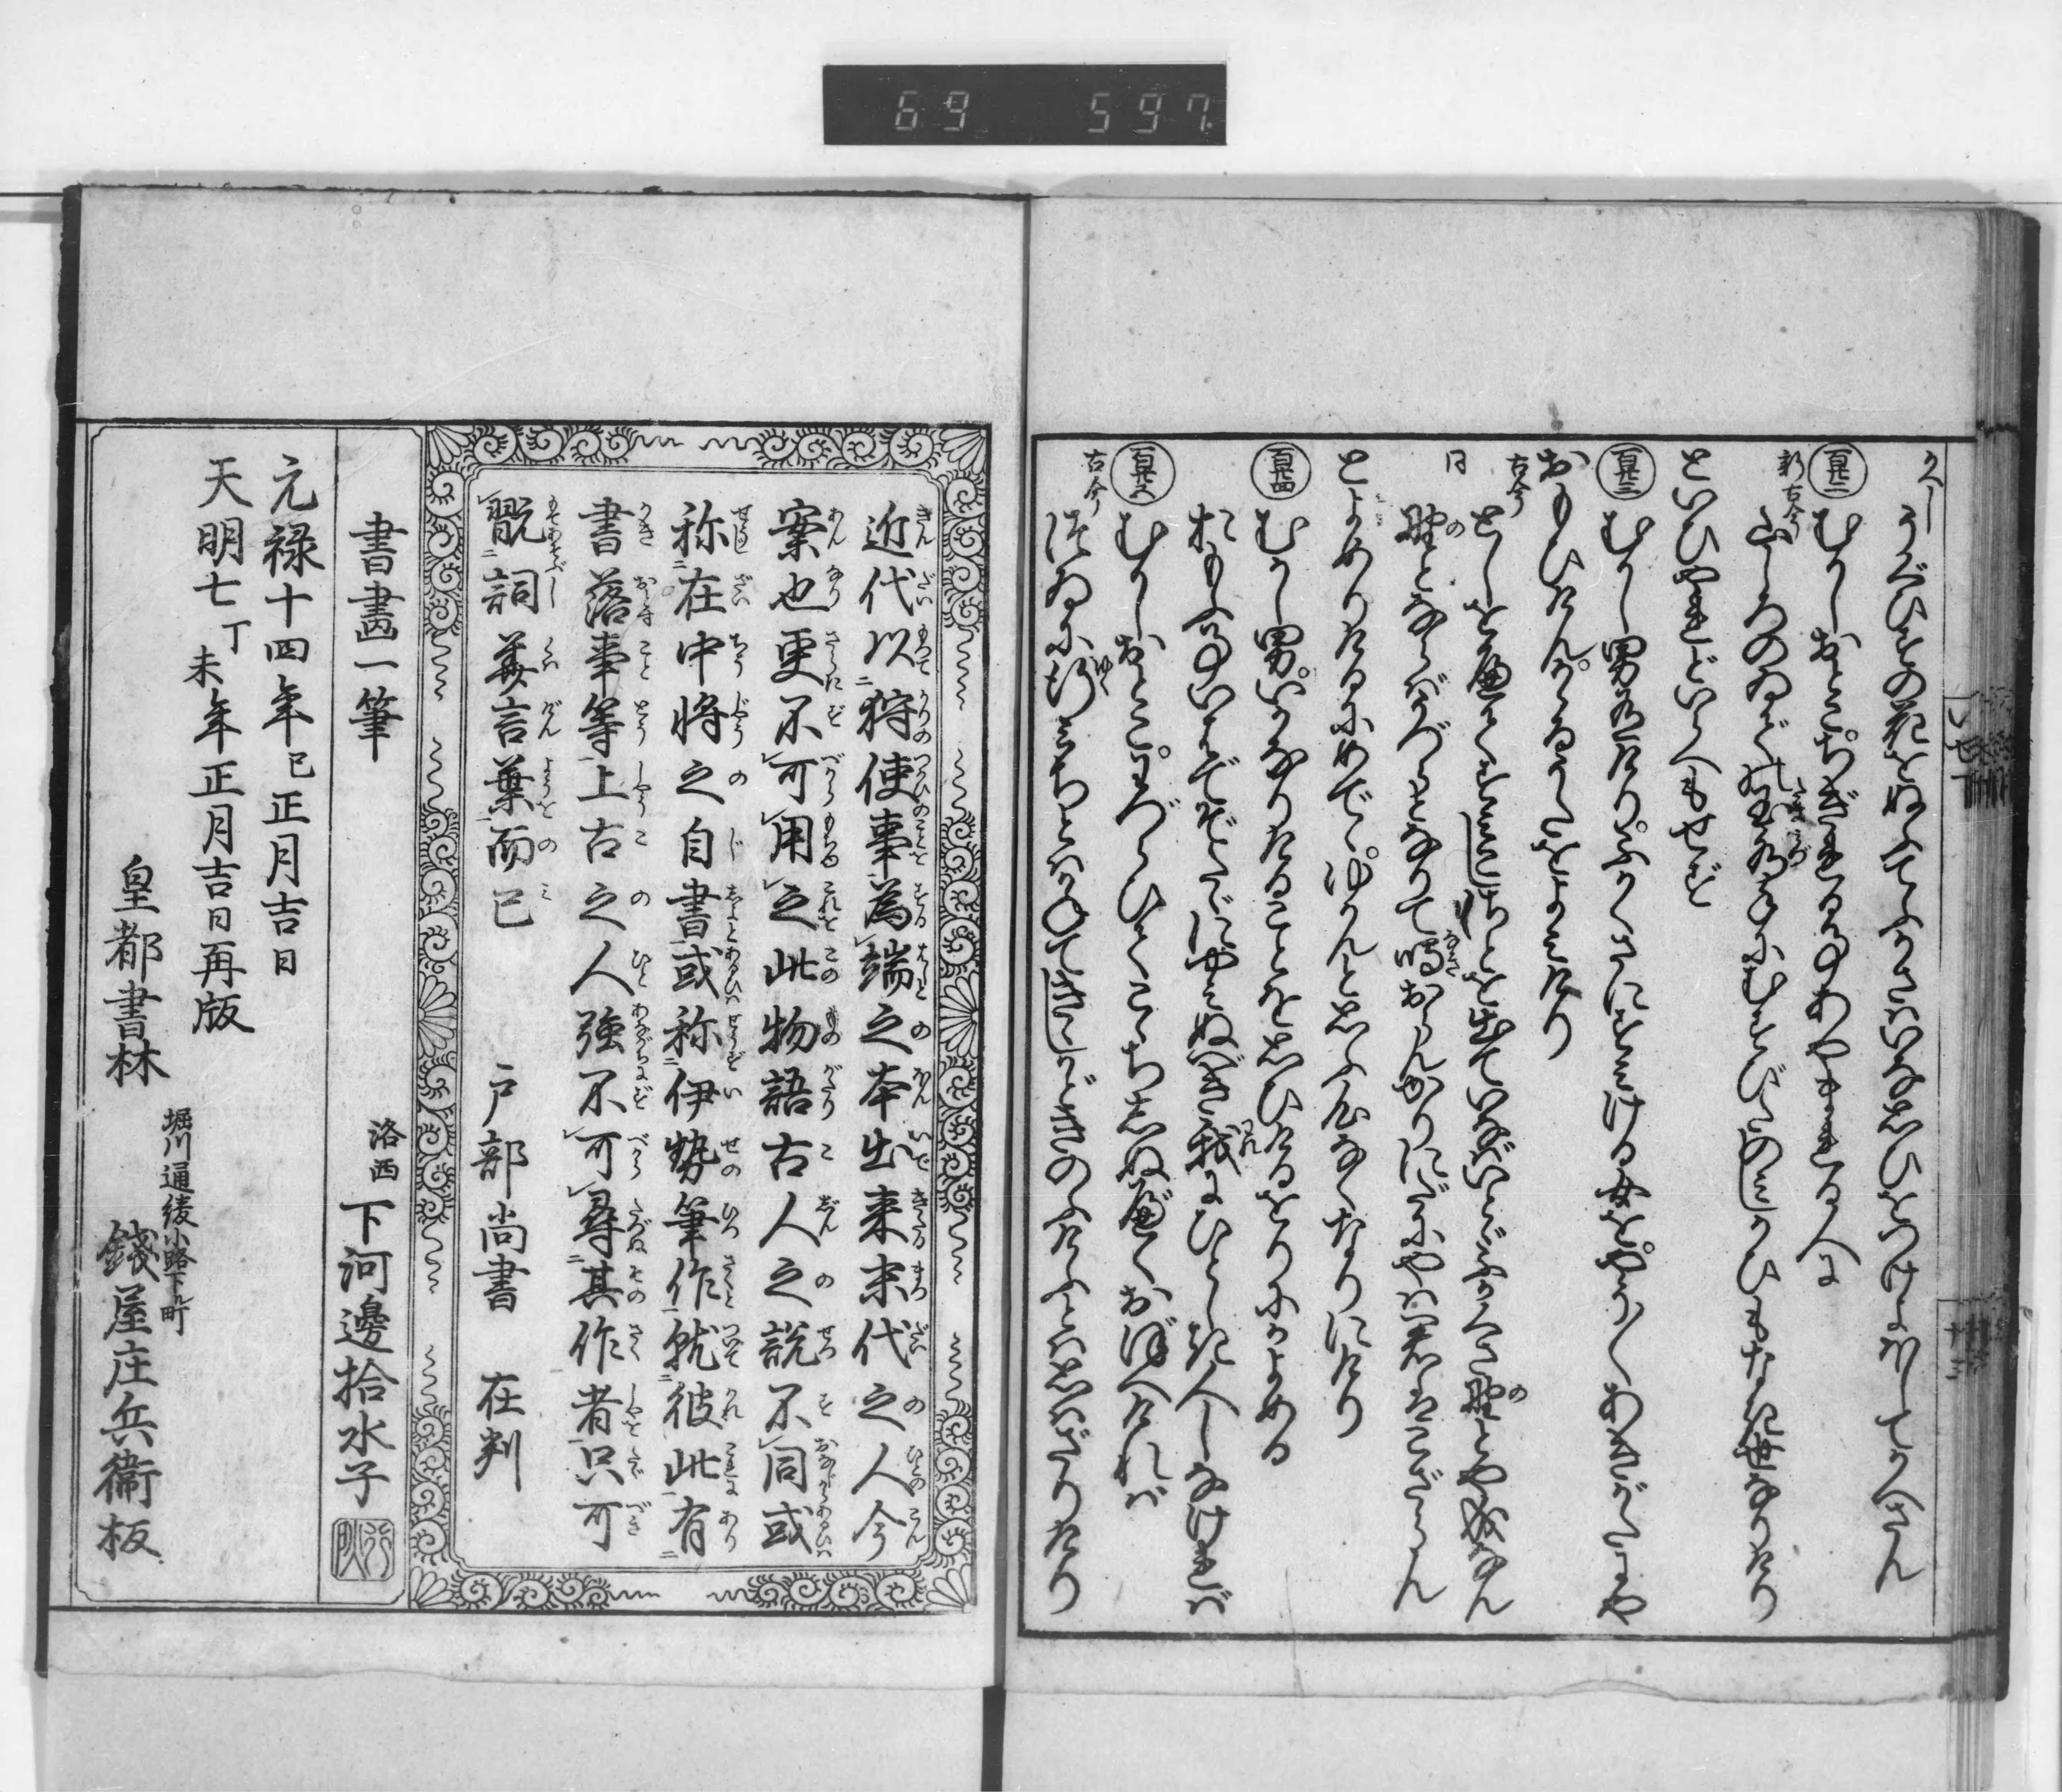 六九 597
かへし
うぐひすの花をぬふてふかさはいなおもひをつけよほしてかへさん
百廿二 むかしおとこちぎれる事あやまれる人に
新古今 山しろのゐでの玉水手にむすびたのみしかひもなき世なりけり
といひやれどいらへもせず
百廿三 むかし男有けりふかくさにすみける女をやう〳〵あきがたにや
おもひけんかゝるうたをよみけり
古今 としを経てすみこしさとを出ていなばいとゞふかくさ野とや成なん
同 野とならばうづらとなりて鳴おらんかりにだにやは君はこざらん
とよめりけるにめでゝゆかんと思ふ心なくなりにけり
百廿四 むかし男いかなりけることをおもひけるをりにかよめる
おもふ事いはでぞたゞにやみぬべき我にひとしき人しなければ
百廿五 むかしおとこわづらひてこゝち死ぬべくおぼへければ
古今 つゐに行みちとはかねてきゝしかどきのふけふとは思はざりけり
近代以狩使事為端之本出来末代之人今
案也更不可用之此物語古人之説不同或
称在中将之自書或称伊勢筆作就彼此有
書落事等上古之人強不可尋其作者只可
翫詞花言葉而已
戸部尚書 在判
書畫一筆
洛西 下河邊拾水子
元禄十四年巳正月吉日
天明七丁未年正月吉日再版
皇都書林
堀川通綾小路下ル町
錢屋庄兵衞板